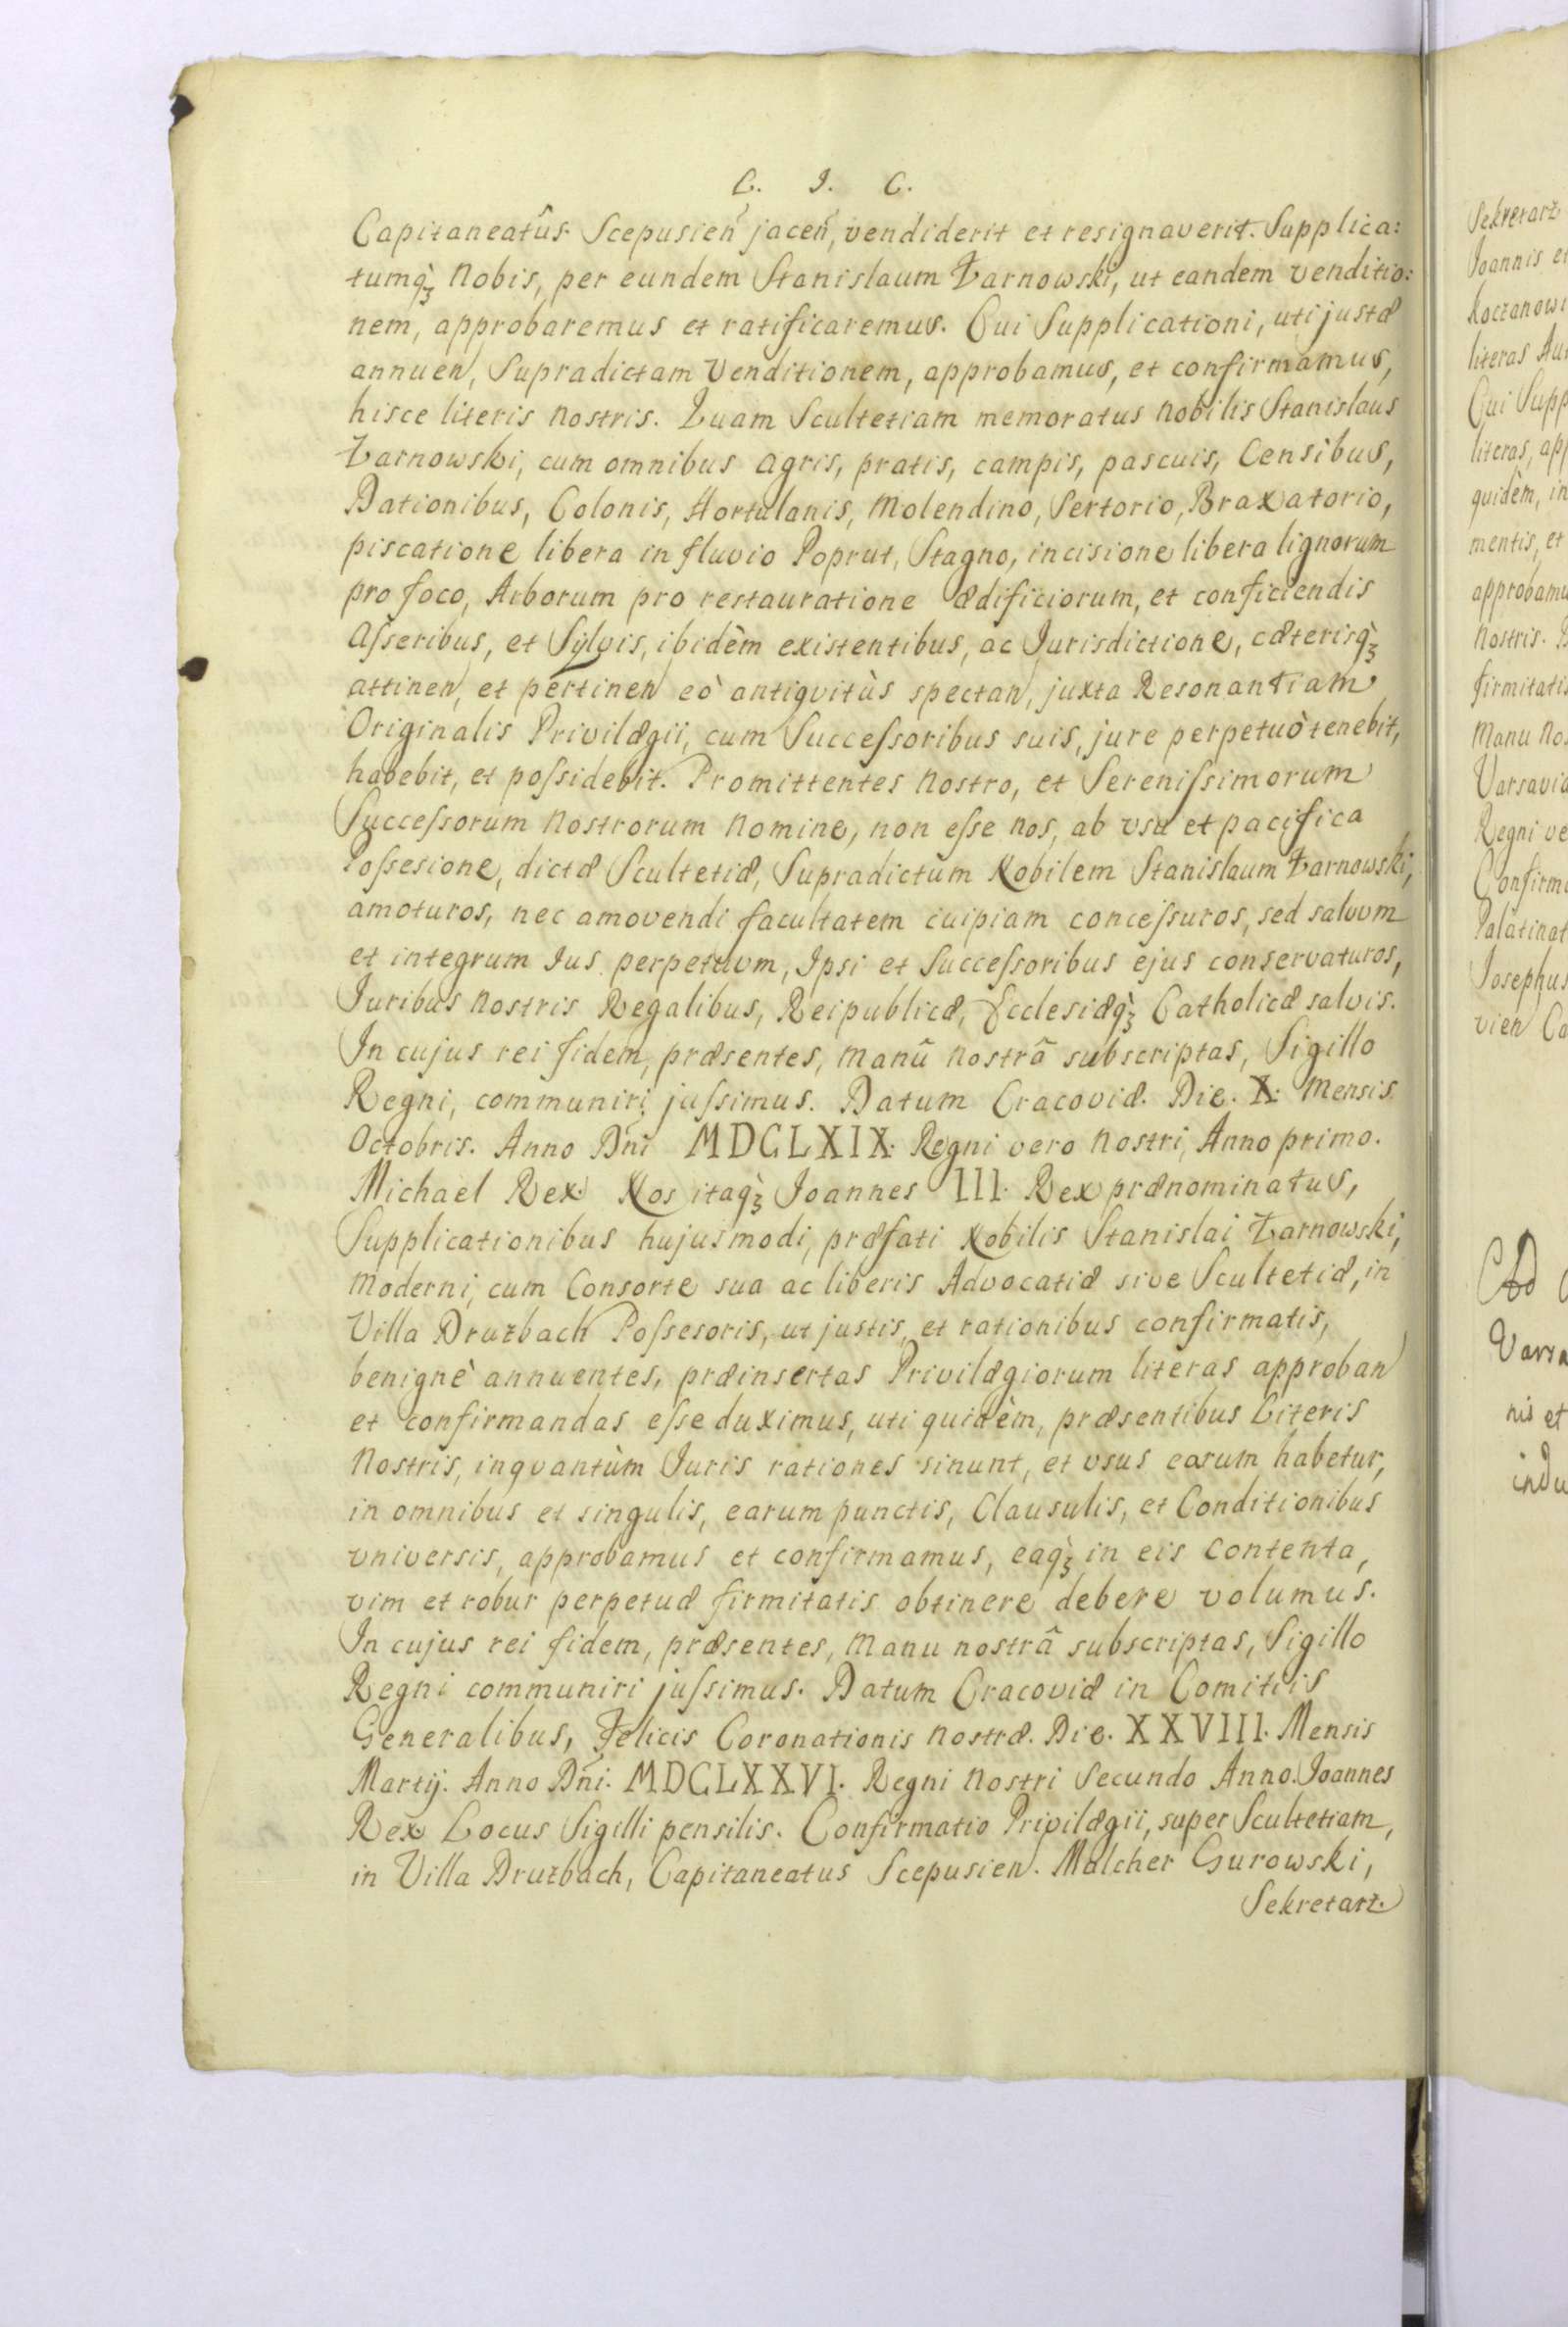 C. I. C.
Capitaneatûs Scepusień jaceń, vendiderit et resignaverit. Supplica:
tumq̀ꝫ Nobis, per eundem Stanislaum Żarnowski, ut eandem venditio:
nem, approbaremus et ratificaremus. Cui Supplicationi, uti justæ
annueń, Supradictam Venditionem, approbamus, et confirmamus,
hisce literis Nostris. Quam Scultetiam memoratus Nobilis Stanislaus
Żarnowski, cum omnibus agris, pratis, campis, pascuis, Censibus,
Dationibus, Colonis, Hortulanis, Molendino, Sertorio, Braxatorio,
piscatione libera in fluvio Poprut, Stagno, incisione libera lignorum
pro foco, Arborum pro restauratione ædificiorum, et conficiendis
Aſseribus, et Sylvis, ibidèm existentibus, ac Jurisdictione, cæterisq̀ꝫ
attineń, et pertineń eò antiqvitùs spectań, juxta Resonantiam
Originalis Privilægii, cum Succeſsoribus suis, jure perpetuò tenebit,
habebit, et poſsidebit. Promittentes Nostro, et Sereniſsimorum
Succeſsorum Nostrorum Nomine, non eſse nos, ab vsu et pacifica
Poſsesione, dictæ Scultetiæ, Supradictum Nobilem Stanislaum Żarnowski,
amoturos, nec amovendi facultatem cuipiam conceſsuros, sed salvvm
et integrum Jus perpetuvm, Ipsi et Succeſsoribus ejus conservaturos,
Juribus Nostris Regalibus, Reipublicæ, Ecclesiæq̀ꝫ Catholicæ salvis.
In cujus rei fidem, præsentes, manû nostrâ subscriptas, Sigillo
Regni, communiri juſsimus. Datum Cracoviæ. Die. X. Mensis
Octobris. Anno Dñi MDCLXIX. Regni vero Nostri, Anno primo.
Michael Rex. Nos itaq̀ꝫ Joannes III. Rex prænominatus,
Supplicationibus hujusmodi, præfati Nobilis Stanislai Żarnowski,
Moderni, cum Consorte sua ac liberis Advocatiæ sive Scultetiæ, in
Villa Druzbach Poſsesoris, ut justis, et rationibus confirmatis,
benignè annuentes, præinsertas Privilægiorum literas approbań
et confirmandas eſse duximus, uti quidèm, præsentibus Literis
Nostris, inqvantùm Juris rationes sinunt, et vsus earum habetur,
in omnibus et singulis, earum punctis, Clausulis, et Conditionibus
vniversis, approbamus et confirmamus, eaq̀ꝫ in eis contenta,
vim et robur perpetuæ firmitatis obtinere debere volumus.
In cujus rei fidem, præsentes, Manu nostrâ subscriptas, Sigillo
Regni communiri juſsimus. Datum Cracoviæ in Comitiis
Generalibus, Felicis Coronationis Nostræ. Die. XXVIII. Mensis
Martij. Anno Dñi. MDCLXXVI. Regni Nostri Secundo Anno. Joannes
Rex Locus Sigilli pensilis. Confirmatio Privilægii, super Scultetiam,
in Villa Druzbach, Capitaneatus Scepusień. Malcher Gurowski,
Sekretarz.
Sekretarz
Joannis
Koczanow
literas
Cui Supp
literas, app
quidèm, in
mentis, et
approbamu
Nostris.
firmitatis
Manu No
Varsavia
Regni ve
Confirm
Palatinat
Josephus
vień Ca
Ad
Varsa
nis et
indu